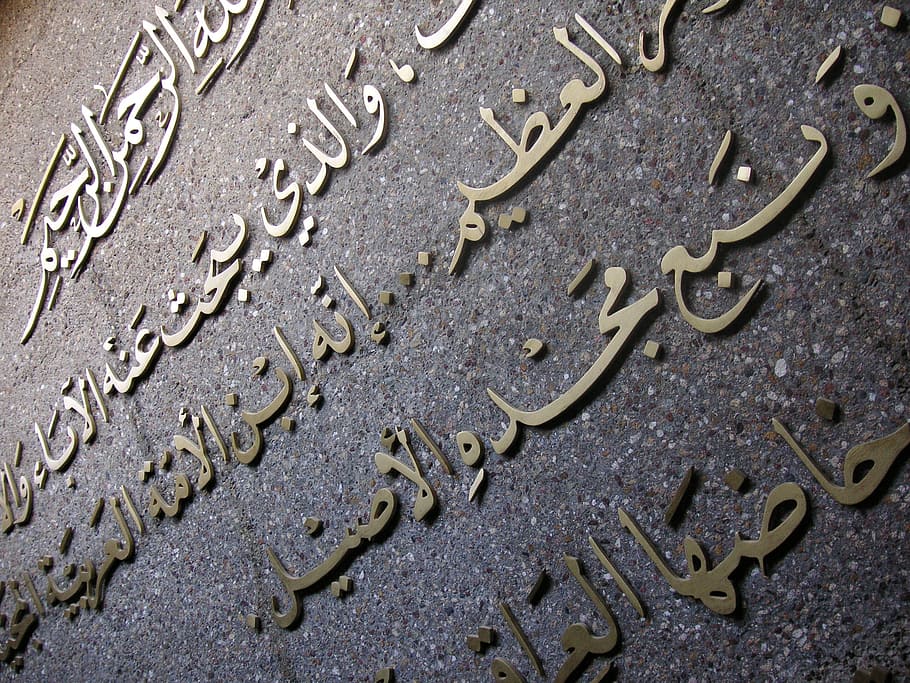 الرَّحْمنِ الرَّحِيمِ
وَالذيْ يبحَث عَنْه الآبَاء
العَظيم ... إنّه ابْن الأمّة العَربيّة
وَ نَبَع مجْدهِ الأصِيْل.
العَراق